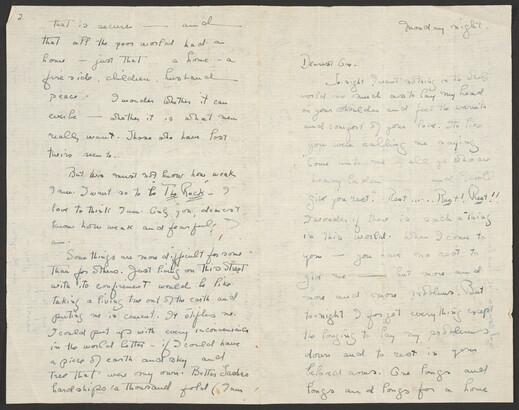 Monday night.
Dearest One.
Tonight I want nothing in the whole
world so much as to lay my head
on your shoulder and feel the warmth
and comfort of your love. It's like
you were calling me saying
Come unto me all ye who are
heavy laden and I will
give you rest". Rest.... Rest! Rest!!
I wonder if there is such a thing
in this world. When I come to
you — you have no rest to
give me — but more and
more and more problems. But
tonight I forget everything except
the longing to lay my problems
down and to rest in your
beloved arms. One longs and
longs and longs for a home
2.
that is secure — and
that all the poor world had a
home — just that a home — a
fireside, children, husband
peace. I wonder whether it can
ever be — whether it is what men
really want. Those who have lost
theirs seem to.
But kids must not know how weak
I am. I want so to be "The Rock" — I
love to think I am. Only you, dearest
know how weak and fearful I
am.
Some things are more difficult for some
than for others. Just living on this street
with its confinement would be like
taking a living tree out of the earth and
putting me in cement. It stifles me.
I could put up with every inconvenience
in the world better — if I could have
a piece of earth and sky and
tree that were my own. Better
hardships a thousand fold (I am